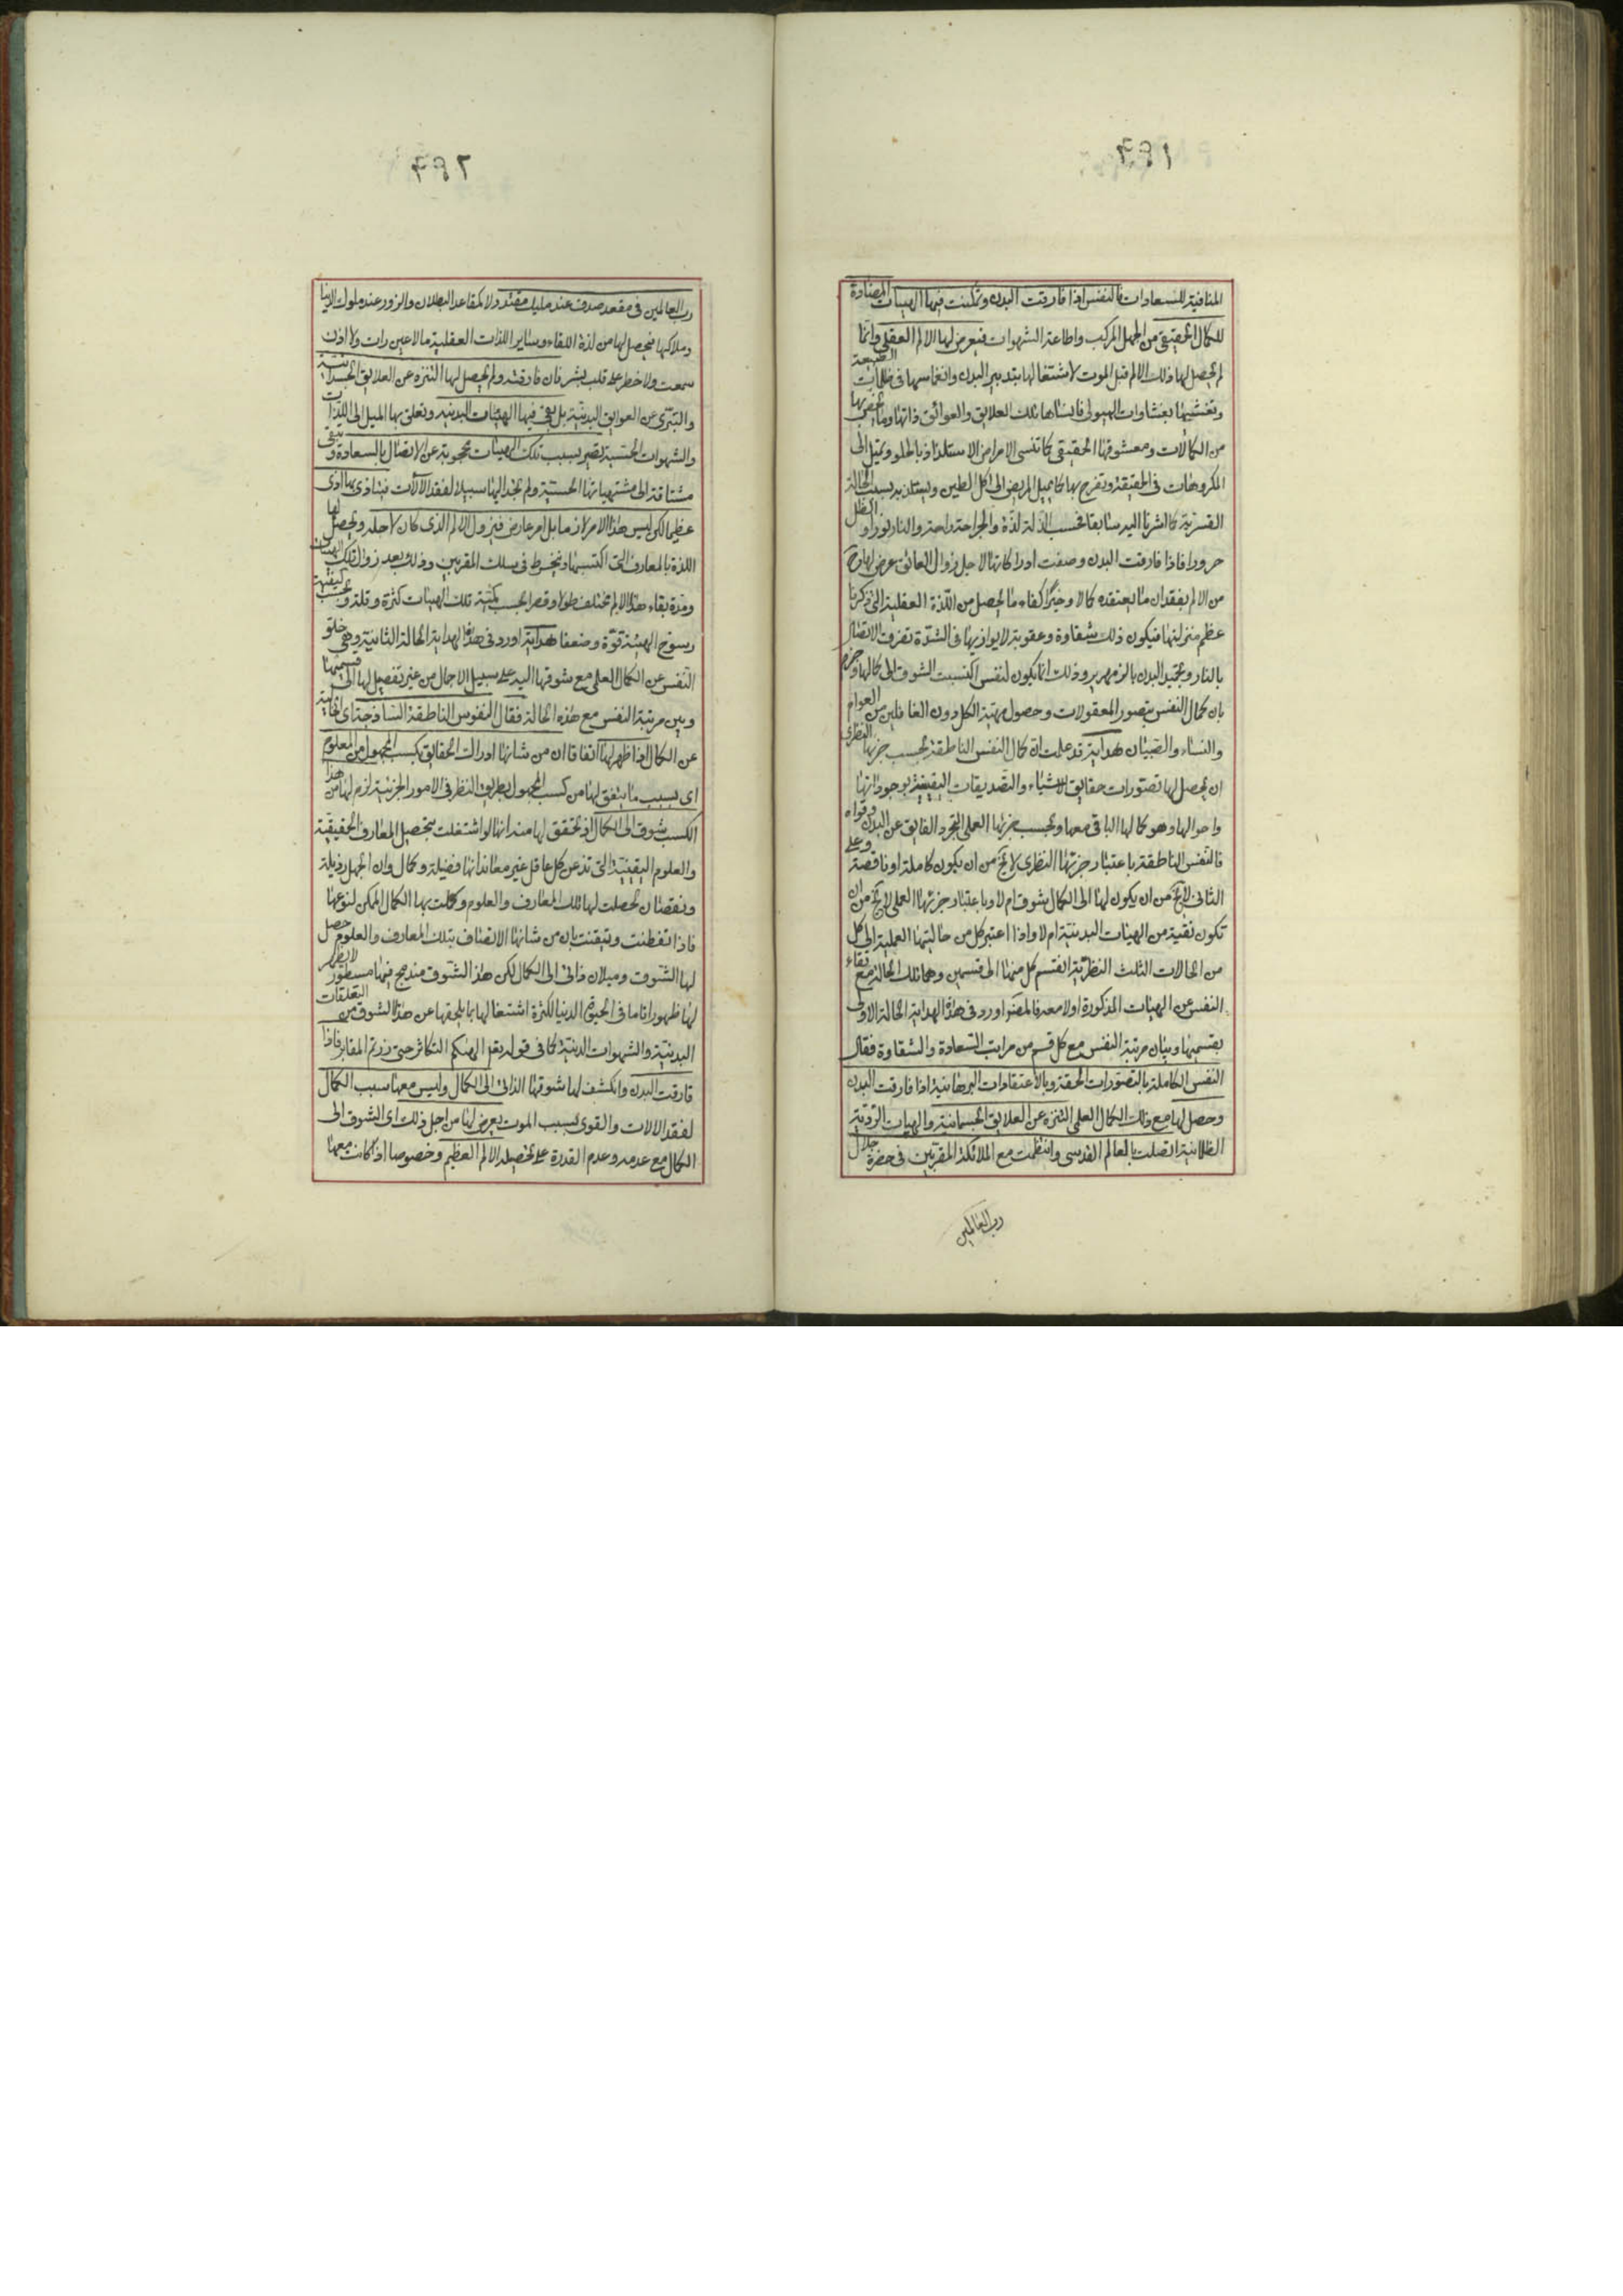 ٤٩١
المنافية للسعادات فالنفس اذا فارقت البدن وتمكنت فيها الهيئات المضادة
للكمال الحقيقى من الجهل المركب واطاعة الشهوات فيعرض لها الالم العقلى وانما
لم يحصل لها ذلك الالم قبل الموت لاشتغالها بتدبير البدن وانغماسها فى ظلمات الطبيعة
وتغشيها بغشاوات الهيولى فانساها تلك العلايق والعوائق ذاتها وما يختص بها
من الكمالات ومعشوقها الحقيقى كما تنسى الامراض الاستلذاذ بالحلو وتميل الى
المكروهات فى الحقيقة وتفرح بها كما يميل المريض الى اكل الطين ويستلذ به بسبب الحالة
القسرية كما اشرنا اليه سابقا فحسب الذلة لذة والجراحة راحة والنار نورا والظل
حرورا فاذا فارقت البدن وصفت ادراكاتها لاجل زوال العائق عرض لها
من الالم بفقدان ما يعتقده كمالا وخيرا كفاء ما يحصل من اللذة العقلية التى ذكرنا
عظم منزلتها فيكون ذلك شقاوة وعقوبة لا يوازيها فى الشدة تفرق الاتصال
بالنار وتجميد البدن بالزمهرير وذلك انما يكون لنفس اكتسبت الشوق الى كمالها وجزم
بان كمال النفس بتصور المعقولات وحصول مهية الكل دون الغافلين من العوام
والنساء والصبيان هداية قد علمت ان كمال النفس الناطقة بحسب جزئها النظرى
ان يحصل لها تصورات حقايق الاشياء والتصديقات اليقينية بوجوداتها
واحوالها وهو كمالها الباقى معها وبحسب جزئها العملى التجرد الفايق عن البدن وقواه
فالنفس الناطقة باعتبار جزئها النظرى لا يخ من ان يكون كاملة او ناقصة وعلى
الثانى لا يخ من ان يكون لها الى الكمال شوق ام لا وباعتبار جزئها العملى لا يخ من ان
تكون نقية من الهيئات البدنية ام لا واذا اعتبر كل من حالتيها العملية الى كل
من الحالات الثلث النظرية انقسم كل منها الى قسمين وهما تلك الحالة مع نقاء
النفس عن الهيئات المذكورة او لا معه فالمصنف اورد فى هذه الهداية الحالة الاولى
بقسميها وبيان مرتبة النفس مع كل قسم من مراتب السعادة والشقاوة فقال
النفس الكاملة بالتصورات الحقة وبالاعتقادات البرهانية اذا فارقت البدن
وحصل لها مع ذلك الكمال العلمى التنزه عن العلايق الجسمانية والهيات الردية
الظلمانية اتصلت بالعالم القدسى وانتظمت مع الملائكة المقربين فى حضرة جلال
رب العالمين
٤٩٢
رب العالمين فى مقعد صدق عند مليك مقتدر لا كمقاعد البطلان والزور عند ملوك الدنيا
وملاكها فيحصل لها من لذة اللقاء وساير اللذات العقلية ما لا عين رات ولا اذن
سمعت ولا خطر على قلب بشر فان فارقته ولم يحصل لها التنزه عن العلايق الجسدانية
والتبرى عن العوايق البدنية بل بقى فيها الهيئات البدنية وتعلق بها الميل الى اللذات
والشهوات الحسية تصير بسبب تلك الهيئات محجوبة عن الاتصال بالسعادة وتبقى
مشتاقة الى مشتهياتها الحسية ولم تجد اليها سبيلا لفقد الآلات فيتاذى بها اذى
عظيما لكن ليس هذا الامر لازما بل امر عارض فيزول الالم الذى كان لاجله ويحصل لها
اللذة بالمعارف التى اكتسبها وتنخرط فى سلك المقربين وذلك بعد زوال تلك الهيئات
ومدة بقاء هذا الالم تختلف طولا وقصرا بحسب كمية تلك الهيئات كثرة وقلة وبحسب كيفيتها
رسوخ الهيئة قوة وضعفا هداية اورد فى هذه الهداية الحالة الثانية وهى خلو
النفس عن الكمال العلمى مع شوقها اليه على سبيل الاجمال من غير تفصيل لها الى قسميها
وبين مرتبة النفس مع هذه الحالة فقال النفوس الناطقة الساذجة اى الخالية
عن الكمال اذا ظهر لها اتفاقا ان من شانها ادراك الحقايق بكسب المجهول من المعلوم
اى بسبب ما يتفق لها من كسب المجهول بطريق النظر فى الامور الجزئية لزم لها من هذا
الكسب شوق الى الكمال اذ تحقق لها منه انها لو اشتغلت بتحصيل المعارف الحقيقية
والعلوم اليقينية التى تذعن كل عاقل غير معاند انها فضيلة وكمال وان الجهل رذيلة
ونقصان تحصلت لها تلك المعارف والعلوم وكملت بها الكمال الممكن لنوعها
فاذا تفطنت وتيقنت بان من شانها الاتصاف بتلك المعارف والعلوم حصل
لها الشوق وميلان ذاتى الى الكمال لكن هذا الشوق مندمج فيها مستور لا يظهر
لها ظهورا تاما فى الحيوة الدنيا لكثرة اشتغالها بما يلهيها عن هذا الشوق من التعلقات
البدنية والشهوات الدنية كما فى قوله تعالى الهيكم التكاثر حتى زرتم المقابر فاذا
فارقت البدن وانكشف لها شوقها الذاتى الى الكمال وليس معها سبب الكمال
لفقد الالات والقوى بسبب الموت يعرض لها من اجل ذلك اى الشوق الى
الكمال مع عدمه وعدم القدرة على تحصيله الالم العظيم وخصوصا اذا كانت معها